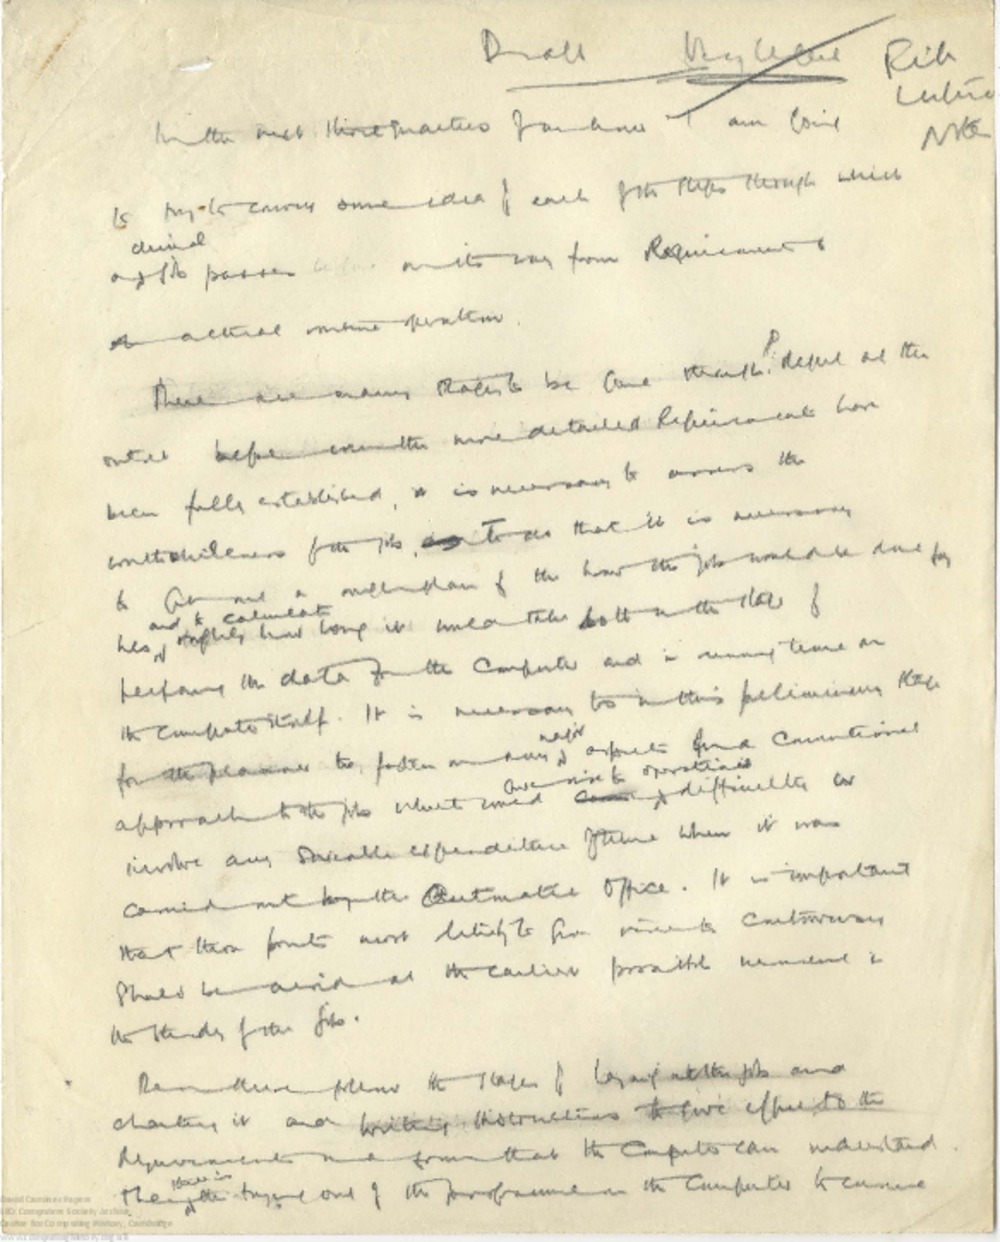 Draft
Lecture
Notes
In the next three quarters of an hour I am going
to try to convey some idea of each of the steps through which
clerical
any job passes on its way from Requirements
actual routine operation.
There are many stages to be gone through. at the
outset before even the more detailed Requirements have
been fully established, it is necessary to assess the
worthwhileness of the job, to do that it is necessary
to a rough plan of the how the job would be done by
and to calculate
Leo roughly how long it would take both in the stage of
preparing the data for the Computer and in running time on
the Computer itself. It is necessary too in this preliminary stage
major
for the planner to aspects of a Conventional
give rise to operational
approach to the job which would difficulty or
involve any sizeable expenditure of time when it was
carried out by the Automatic Office. It is important
that those points most likely to give rise to controversy
should be at the earliest possible moment in
the study of the job.
Then there follows the stages of laying out the job and
charting it and writing instructions to give effect to the
Requirements in a form that the Computer can understand.
there is
Then the trying out of the programme on the Computer to ensure
David Caminer Papers
LEO Computers Society Archive
Centre for Computing History, Cambridge
www.computinghistory.org.uk